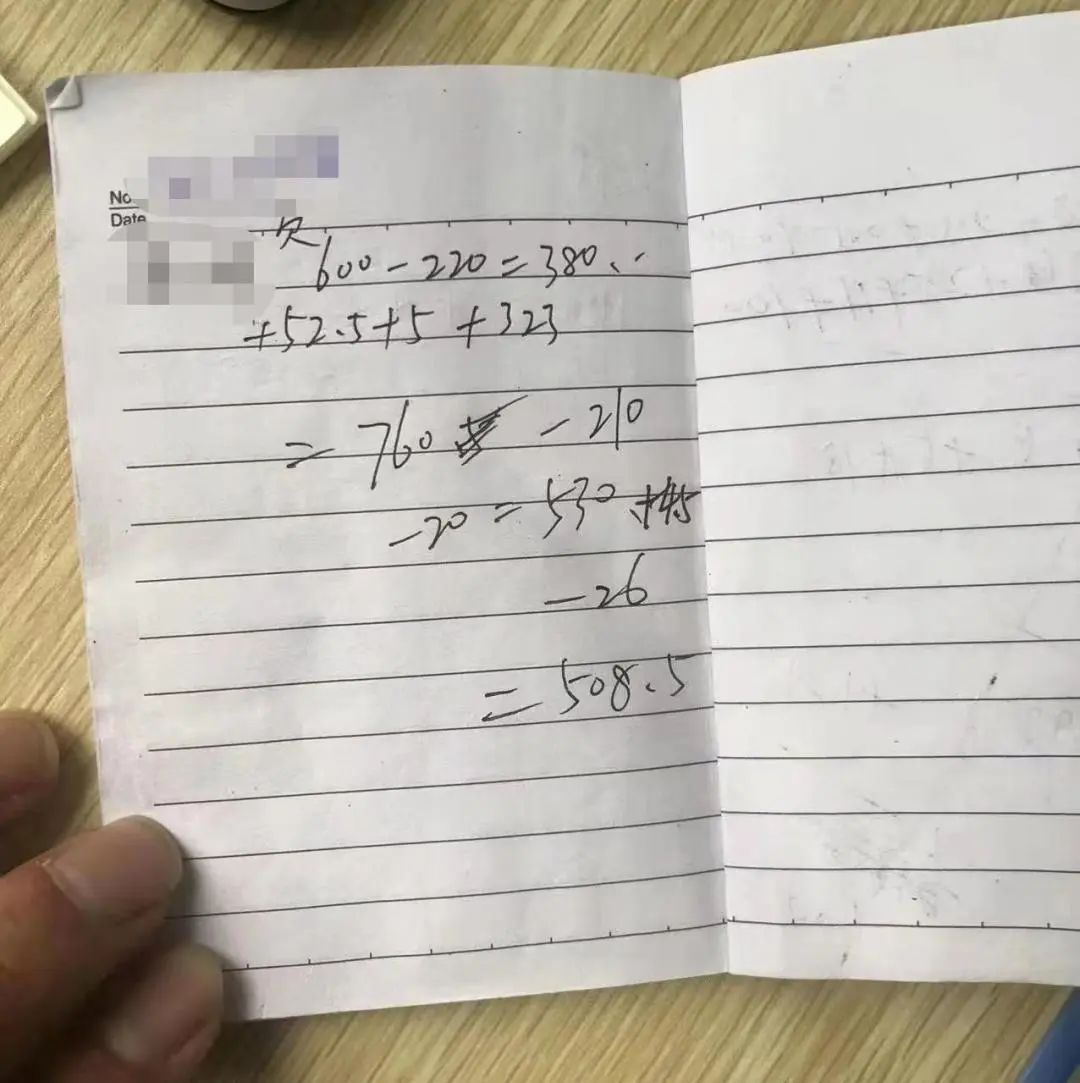 No
Date
欠
600-220=380..
+52.5+5+323
=760 -210
-20=530+4.5
-26
=508.5